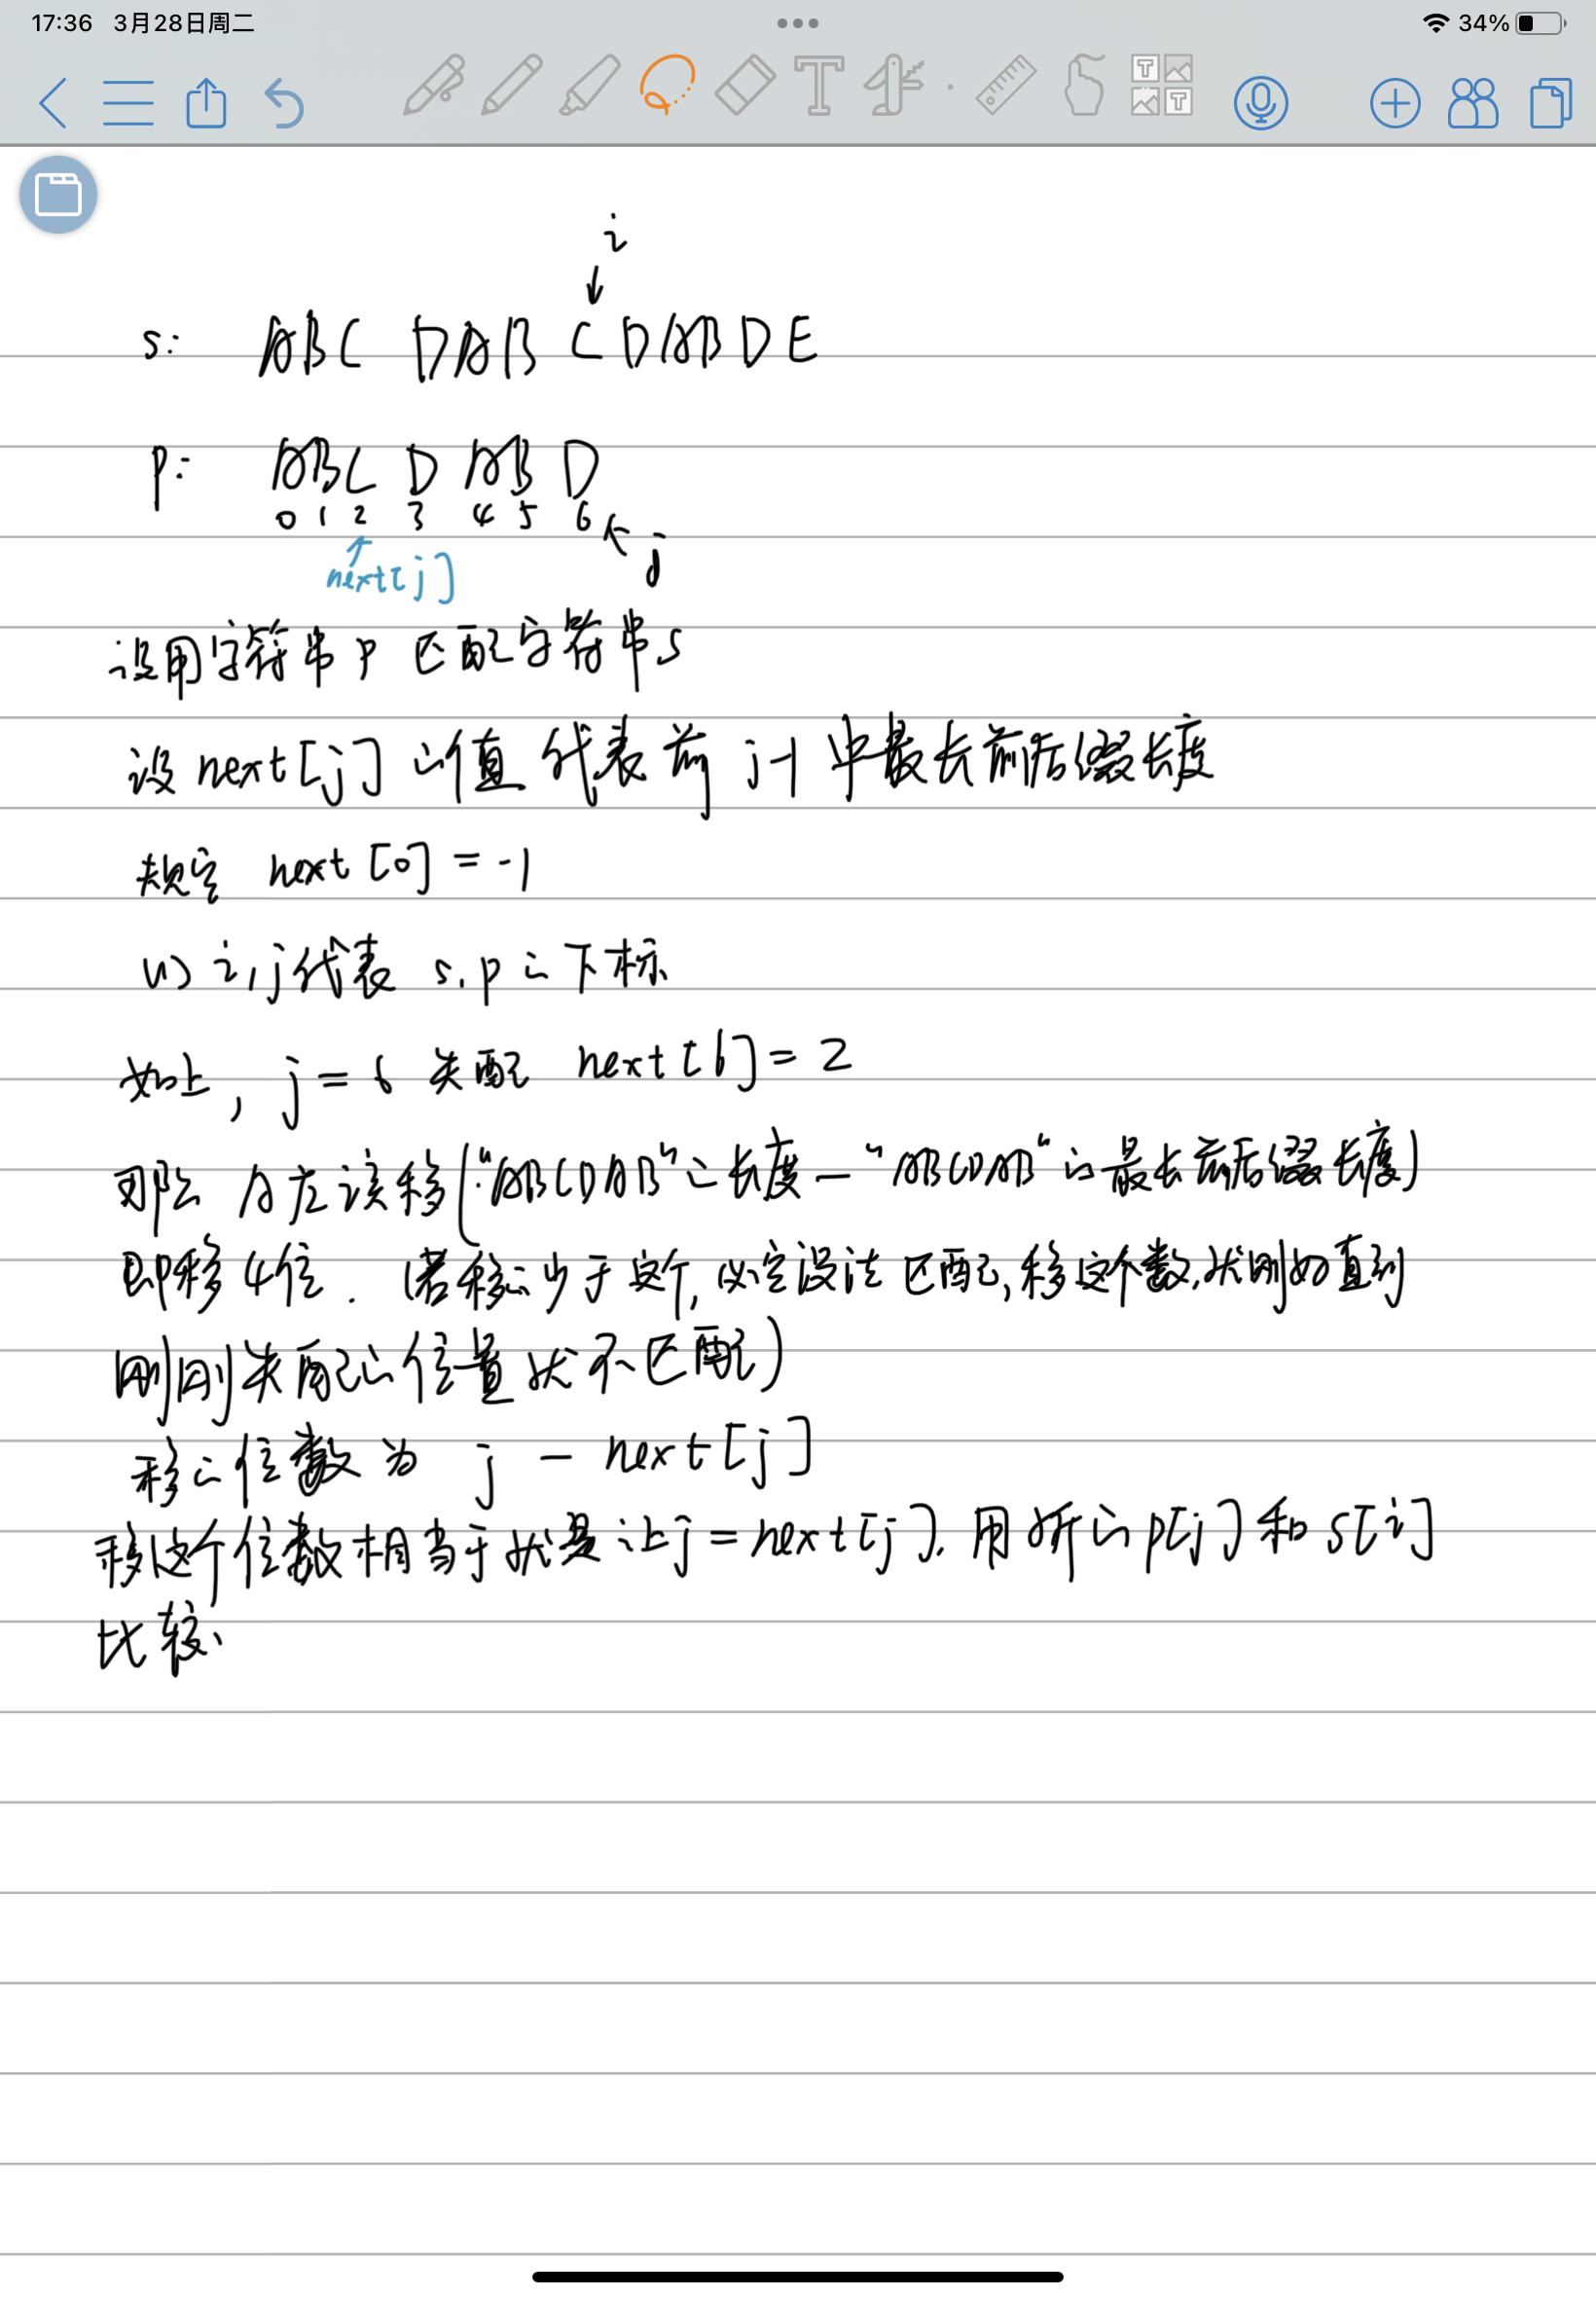 17:36 3月28日周二
34%
i
↓
s: ABC DABCDABDE
p: ABCDABD
0 1 2 3 4 5 6 ← j
↑
next[j]
设用字符串p匹配字符串s
设next[j]的值代表前j-1中最长前后缀长度
规定 next[0] = -1
(1) i,j代表 s,p的下标
如上, j=6 失配 next[6]=2
那么 A应该移("ABCDAB"的长度-"ABCDAB"的最长前后缀长度)
即移4位. (若移的少于这个,必定没法匹配,移这个数,
刚刚失配的位置 不匹配)
移的位数为 j - next[j]
移这个位数相当于就是让j=next[j], 用新的p[j]和s[i]
比较.